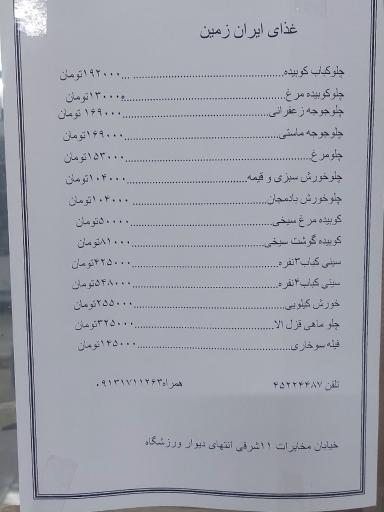 غذای ایران زمین
چلوکباب کوبیده...........................................۱۹۲۰۰۰تومان
چلوکوبیده مرغ...........................................۱۳۰۰۰۰تومان
چلوجوجه زعفرانی........................................۱۶۹۰۰۰ تومان
چلوجوجه ماستی........................................۱۶۹۰۰۰تومان
چلومرغ....................................................۱۵۳۰۰۰تومان
چلوخورش سبزی و قیمه................................۱۰۴۰۰۰تومان
چلوخورش بادمجان......................................۱۰۴۰۰۰ تومان
کوبیده مرغ سیخی.......................................۵۰۰۰۰تومان
کوبیده گوشت سیخی....................................۸۱۰۰۰تومان
سینی کباب۳نفره.........................................۴۲۵۰۰۰تومان
سینی کباب۴نفره.........................................۵۴۸۰۰۰تومان
خورش کیلویی............................................۲۵۵۰۰۰تومان
چلو ماهی قزل الا........................................۳۲۵۰۰۰تومان
فیله سوخاری............................................۱۴۵۰۰۰تومان
تلفن ۴۵۲۲۴۴۸۷ همراه۰۹۱۳۱۷۱۱۲۶۳
خیابان مخابرات ۱۱شرقی انتهای دیوار ورزشگاه